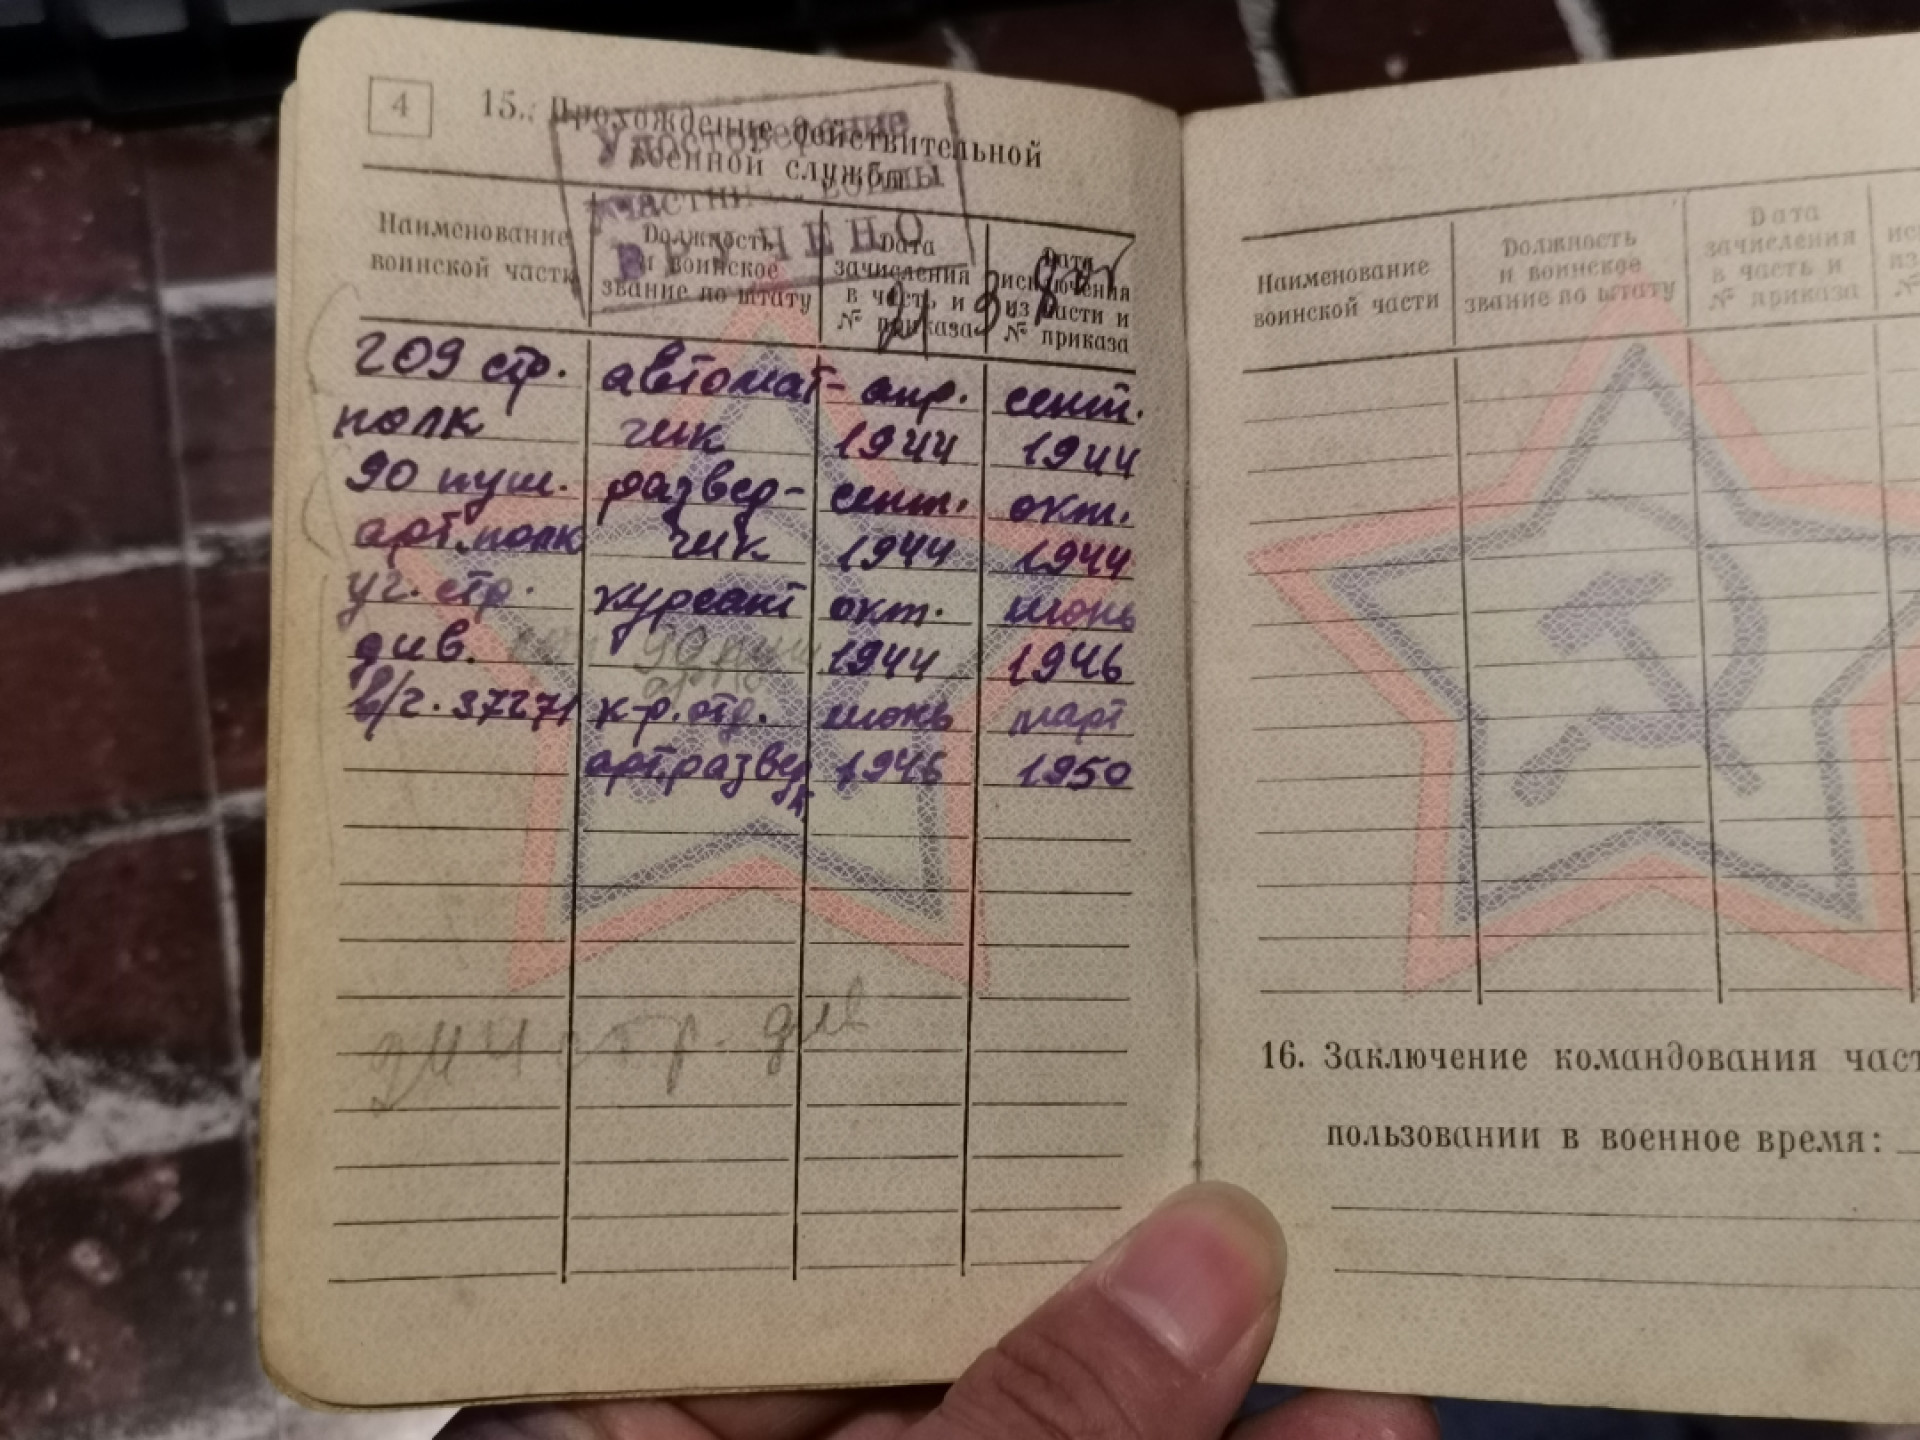 4
15. Прохождение действительной
военной службы
Удостоверение
войны
ВРУЧЕНО
Наименование
воинской части
Должность
и воинское
звание по штату
Дата
зачисления
в часть и
№ приказа
Дата
исключения
из части и
№ приказа
209 стр. автомат- апр. сент.
полк чик 1944 1944
90 пуш. развед- сент. окт.
арт. полк чик 1944 1944
уч. стр. курсант окт. июнь
див. 1944 1946
в/ч. 37271 к-р. отд. июнь март
арт. развед 1946 1950
стр. див
Наименование
воинской части
Должность
и воинское
звание по штату
Дата
зачисления
в часть и
№ приказа
16. Заключение командования част
пользовании в военное время: